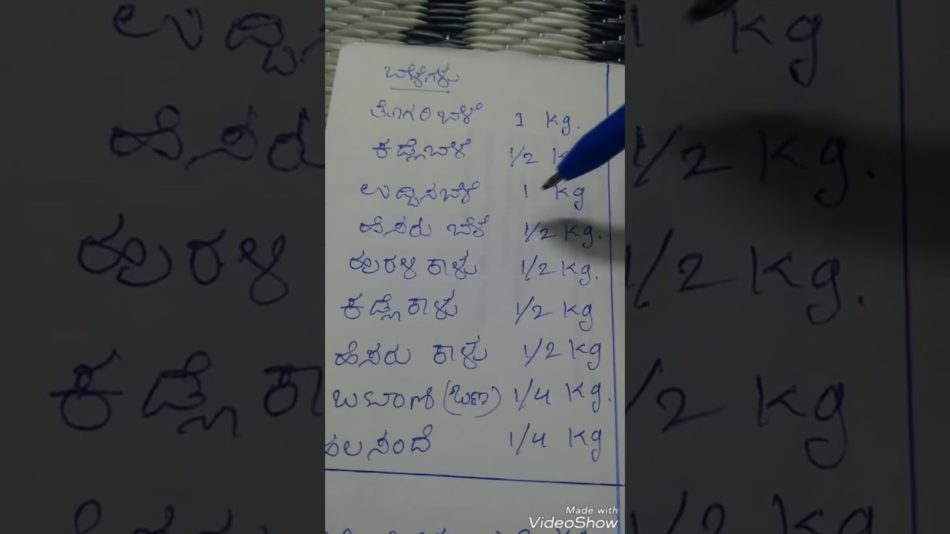 ಬೇಳೆಗಳು
ತೊಗರಿಬೇಳೆ 1 Kg.
ಕಡ್ಲೆಬೇಳೆ 1/2 K
ಉದ್ದಿನಬೇಳೆ 1 Kg
ಹೆಸರು ಬೇಳೆ 1/2 Kg.
ಹುರಳಿ ಕಾಳು 1/2 Kg.
ಕಡ್ಲೆಕಾಳು 1/2 Kg
ಹೆಸರು ಕಾಳು 1/2 Kg
ಬಟಾಣಿ (ಒಣ) 1/4 Kg.
ಹಲಸಂದೆ 1/4 Kg
Made with
VideoShow